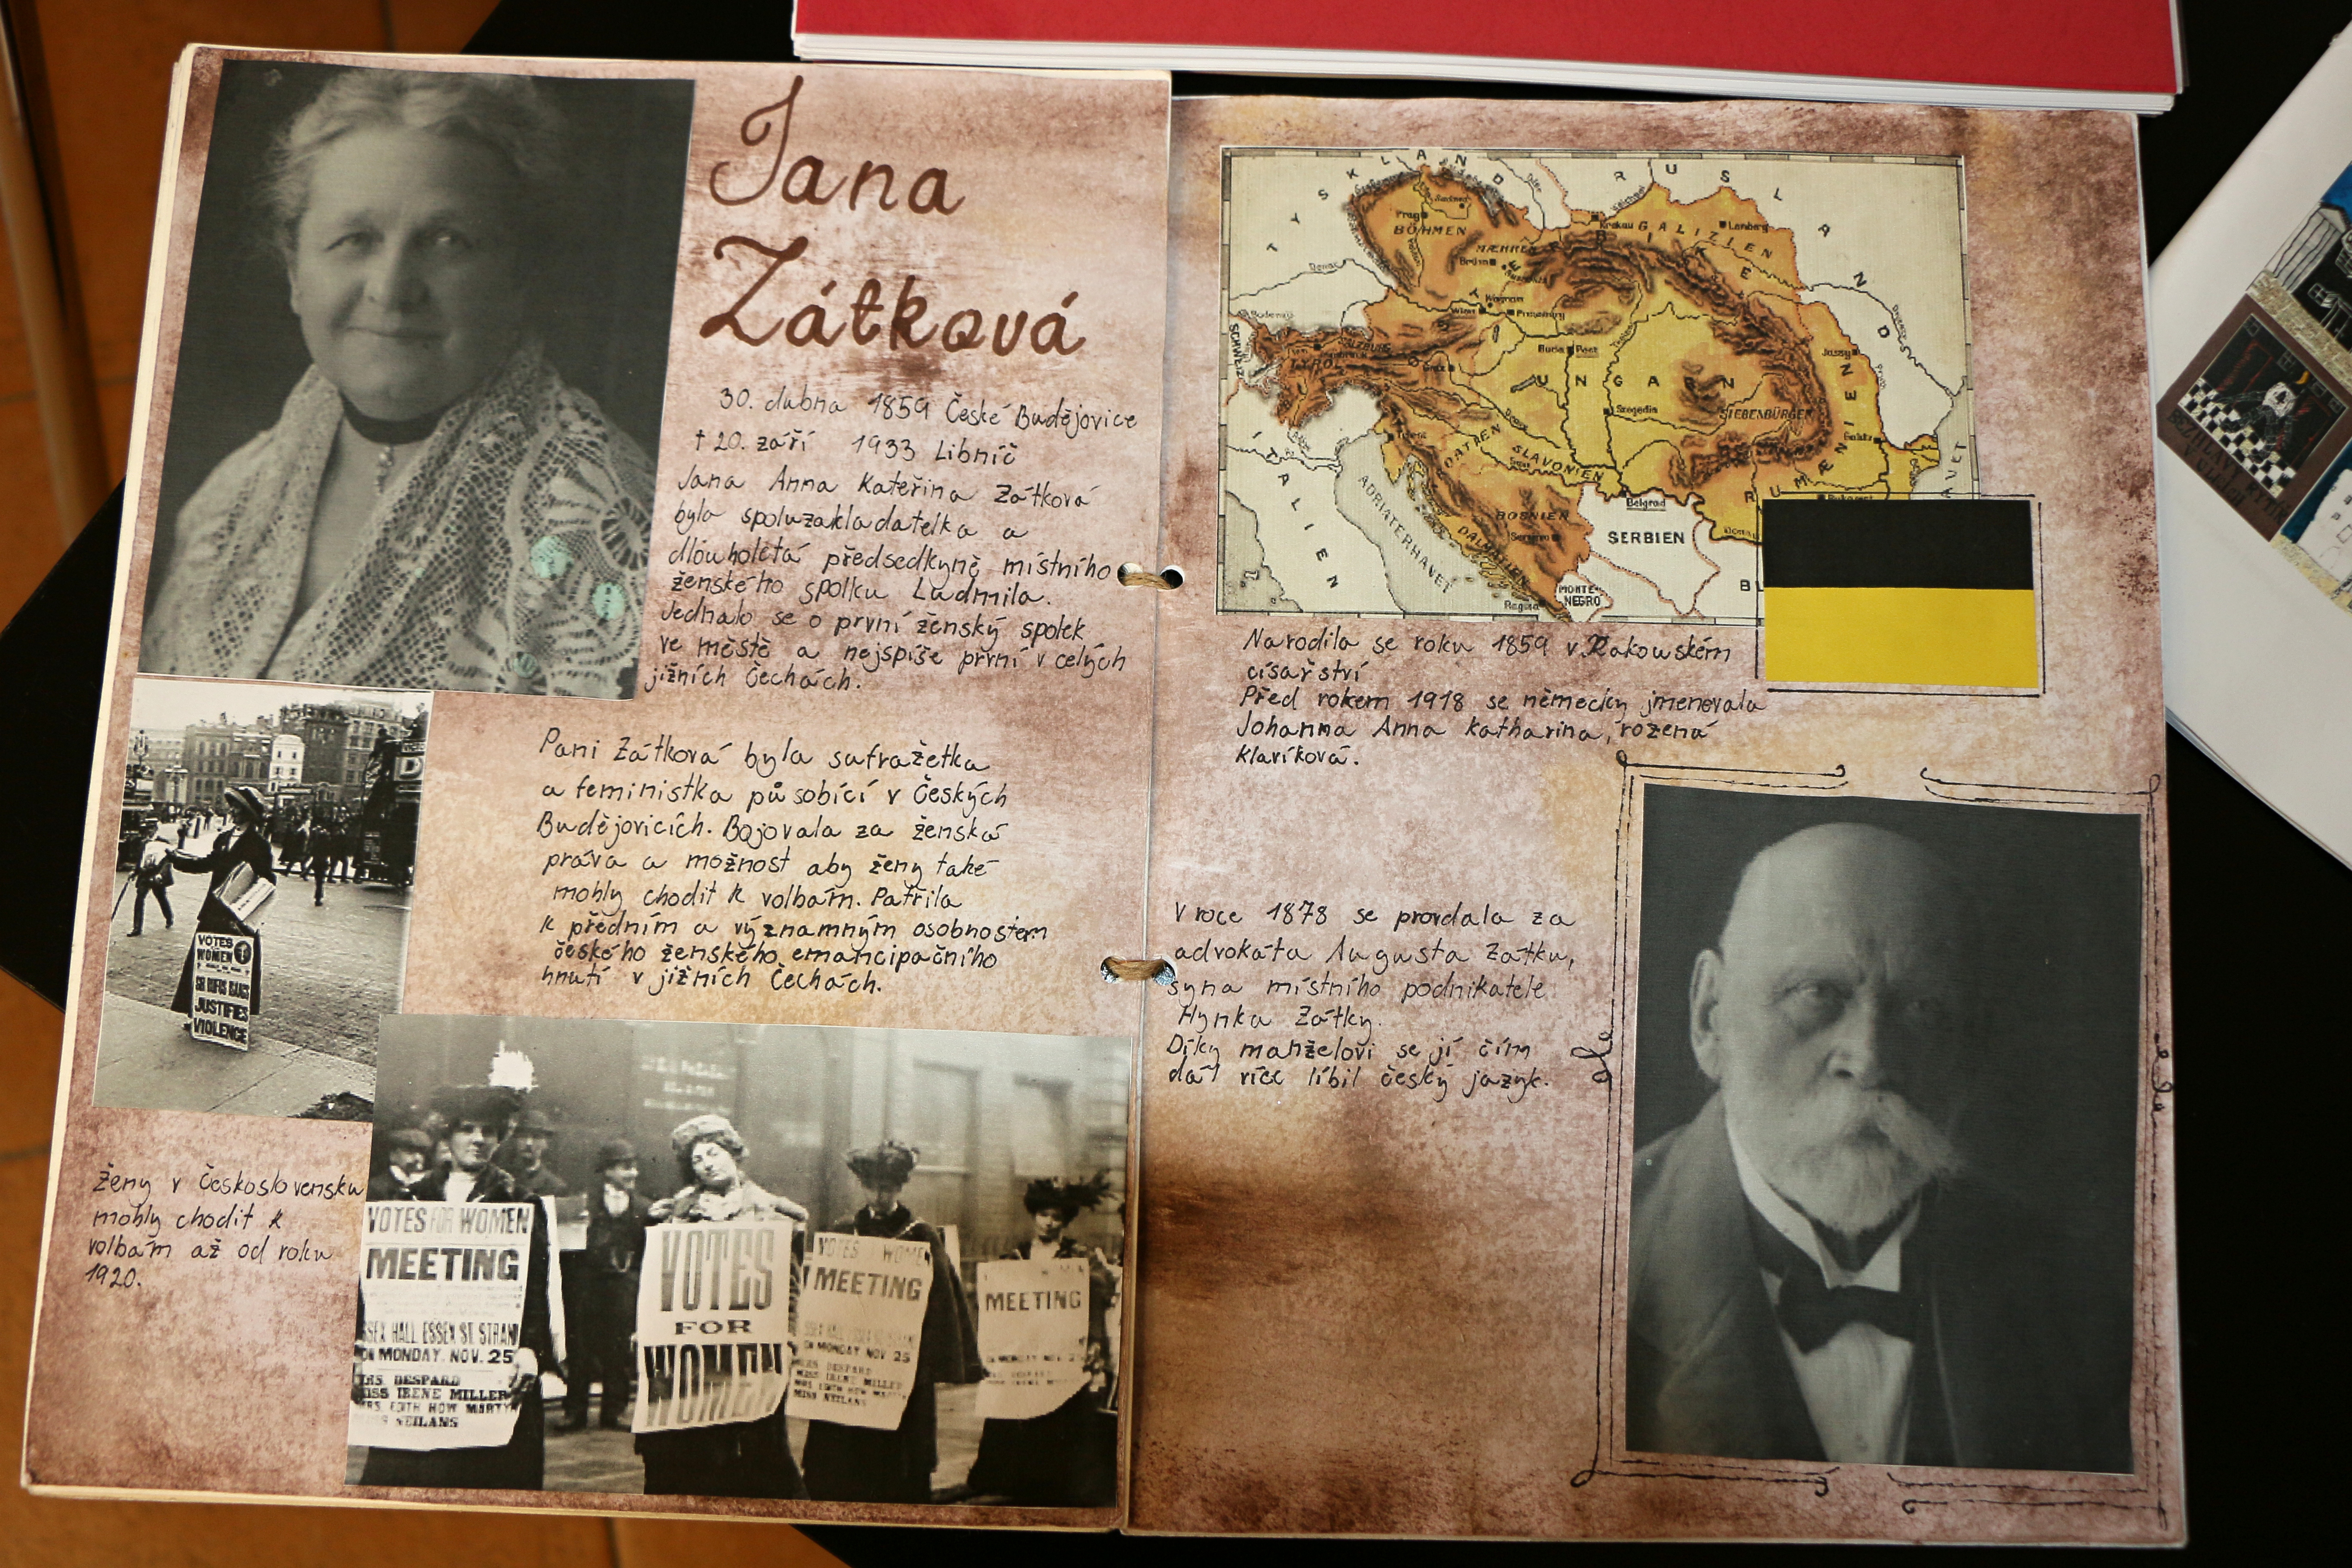 Jana
Zátková
30. dubna 1859 České Budějovice
† 20. září 1933 Libníč
Jana Anna Kateřina Zátková
byla spoluzakladatelka a
dlouholetá předsedkyně místního
ženského spolku Ludmila.
Jednalo se o první ženský spolek
ve městě a nejspíše první v celých
jižních Čechách.
Paní Zátková byla sufražetka
a feministka působící v Českých
Budějovicích. Bojovala za ženská
práva a možnost aby ženy také
mohly chodit k volbám. Patřila
k předním a významným osobnostem
českého ženského emancipačního
hnutí v jižních Čechách.
VOTES
WOMEN
JUSTIFIES
VIOLENCE
Ženy v Československu
mohly chodit k
volbám až od roku
1920.
VOTES FOR WOMEN
MEETING
ESSEX HALL ESSEX ST STRAND
ON MONDAY. NOV. 25
MRS. DESPARD
MISS IRENE MILLER
MRS. EDITH HOW MARTYN
NEILANS
VOTES
FOR
WOMEN
VOTES WOMEN
MEETING
MONDAY NOV 25
MEETING
TYSKLAND
RUSLAND
ØSTERRIKE
BÖHMEN
Prag
MÆHREN
Brünn
Krakau
GALIZIEN
Lemberg
Wagram
Wien
Pressburg
SCHWEIZ
SALZBURG
TYROL
Buda Pest
UNGARN
Szegedin
SIEBENBÜRGEN
Jassy
Galatz
RUMÆNIEN
Bukarest
ITALIEN
Triest
KROATIEN
SLAVONIEN
ADRIATERHAVET
BOSNIEN
DALMATIEN
Serajewo
Belgrad
SERBIEN
MONTE-
NEGRO
Ragusa
Narodila se roku 1859 v Rakouském
císařství
Před rokem 1918 se německy jmenovala
Johanna Anna Katharina, rožená
Klaríková.
V roce 1878 se provdala za
advokáta Augusta Zátku,
syna místního podnikatele
Hynka Zátky.
Díky manželovi se jí čím
dál více líbil český jazyk.